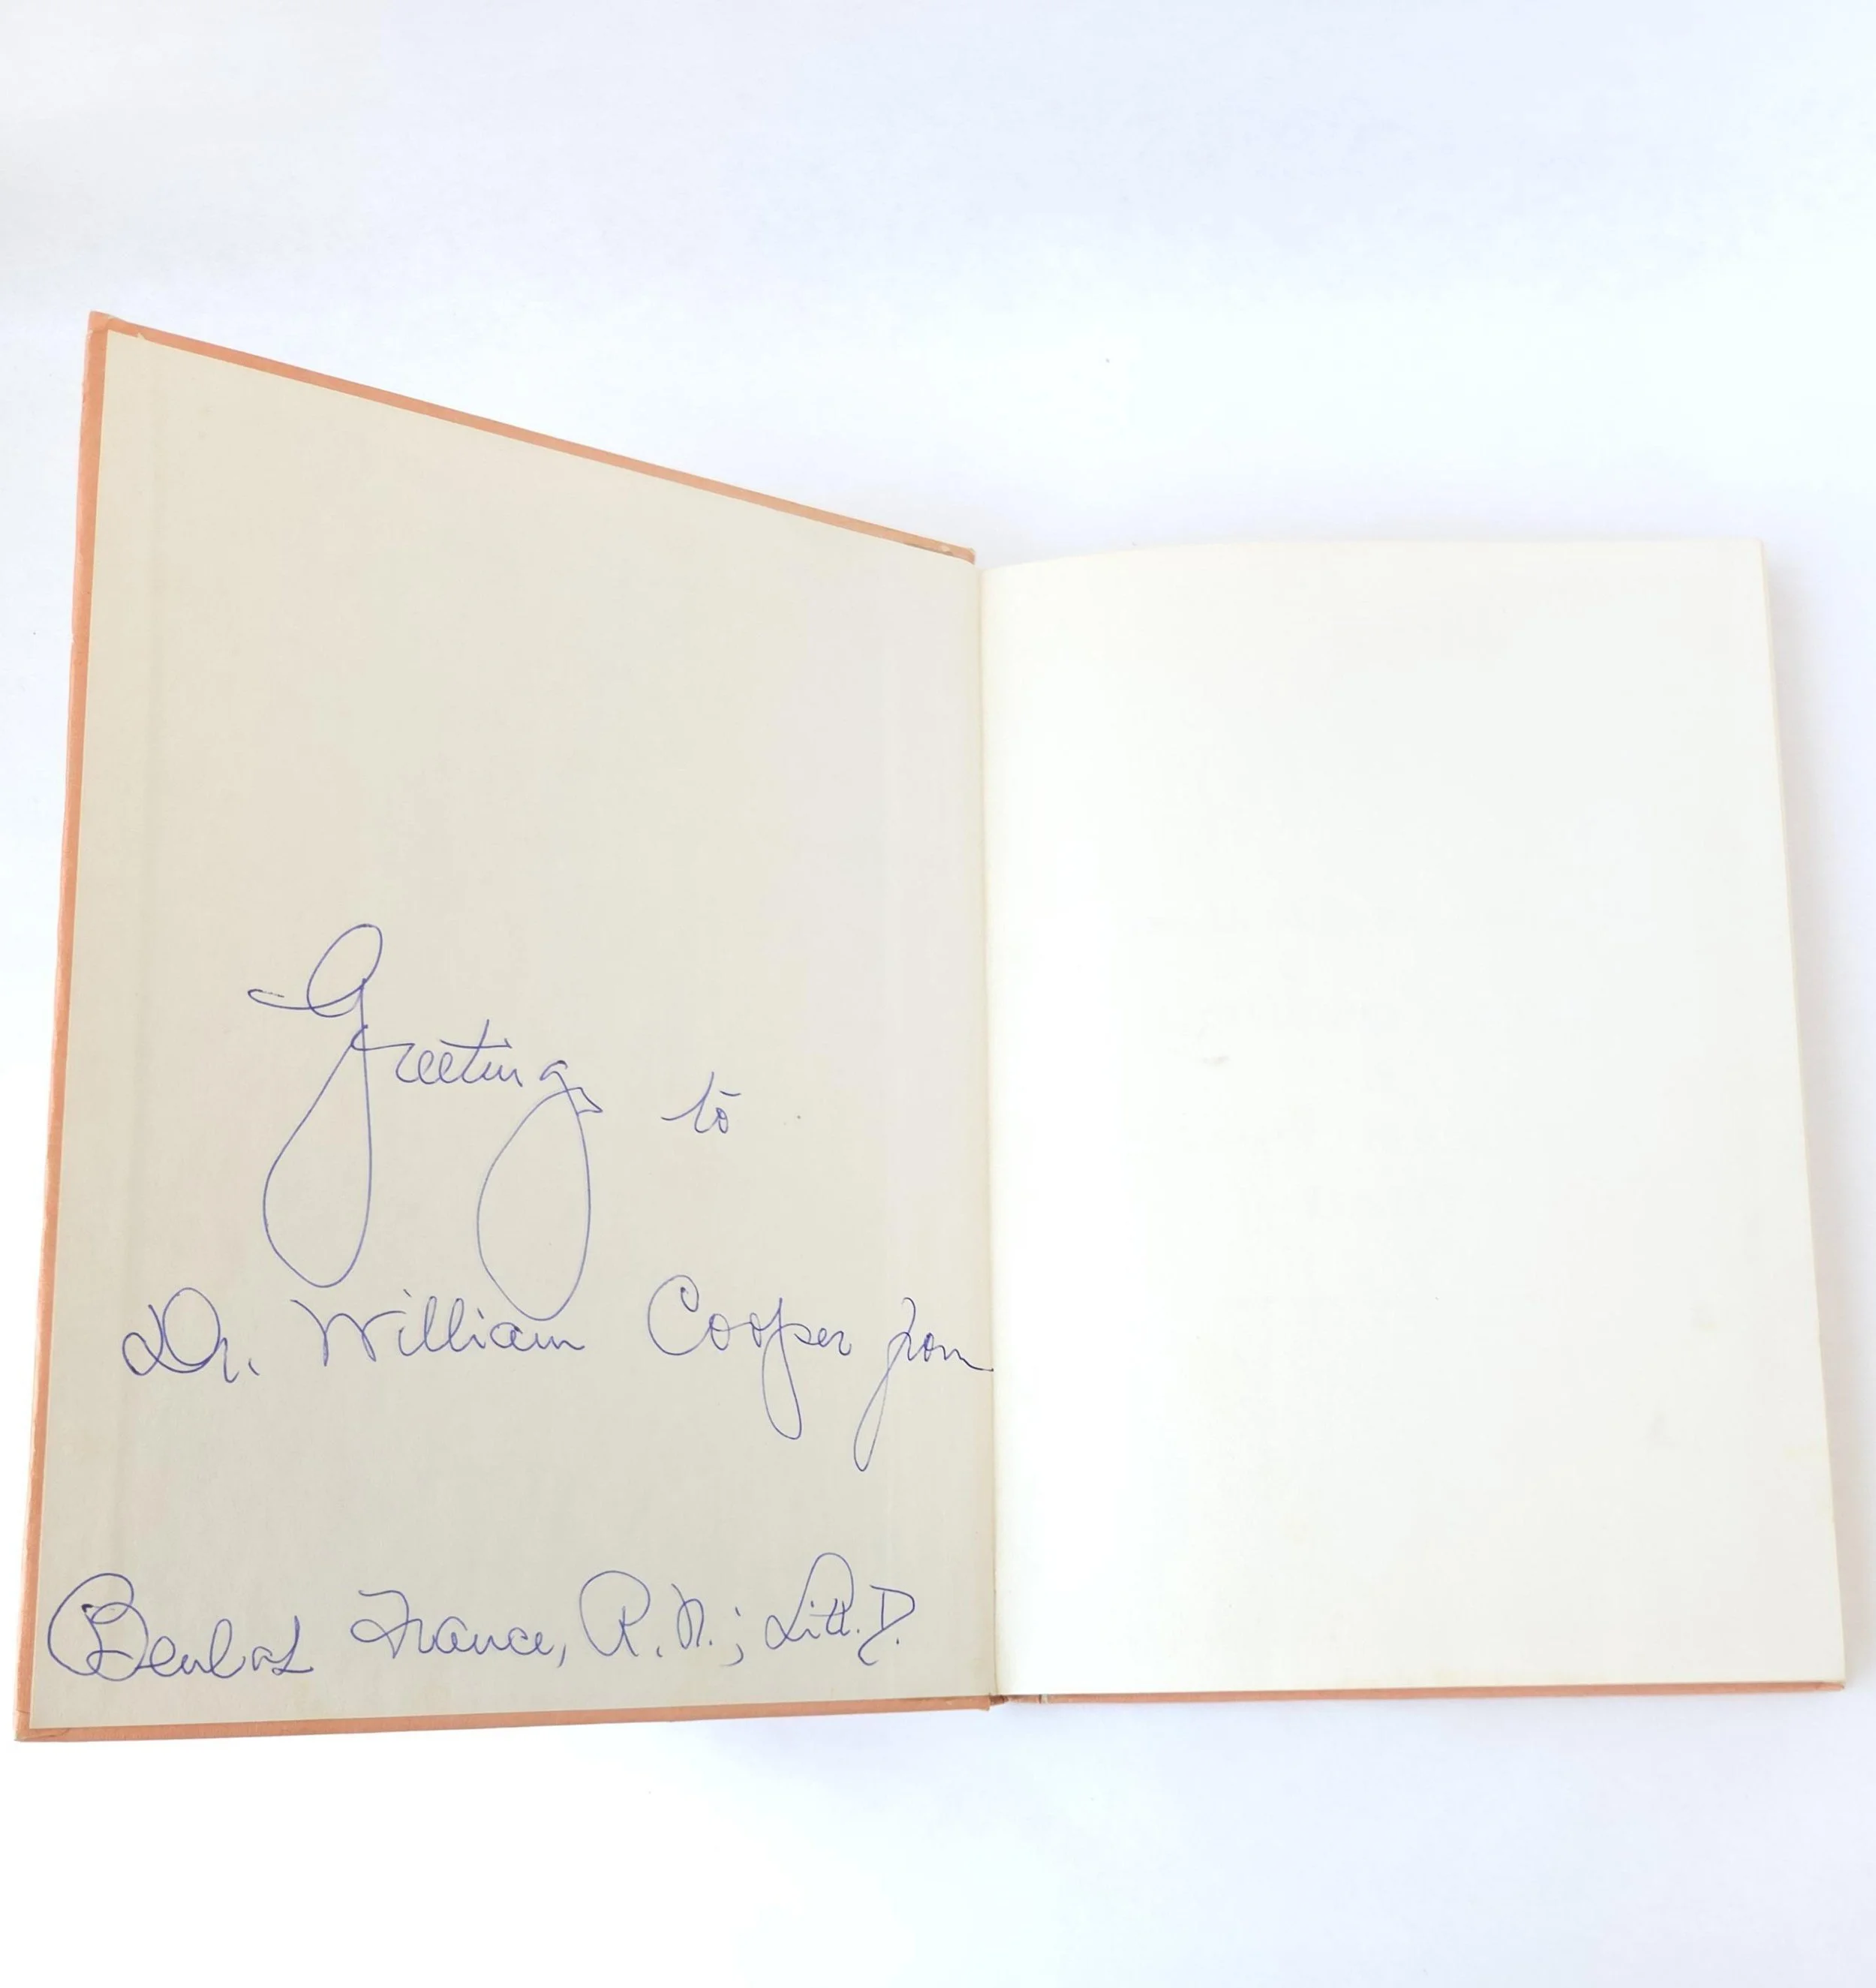 Greetings to
Dr. William Cooper from
Beulah France, R.N.; Litt.D.